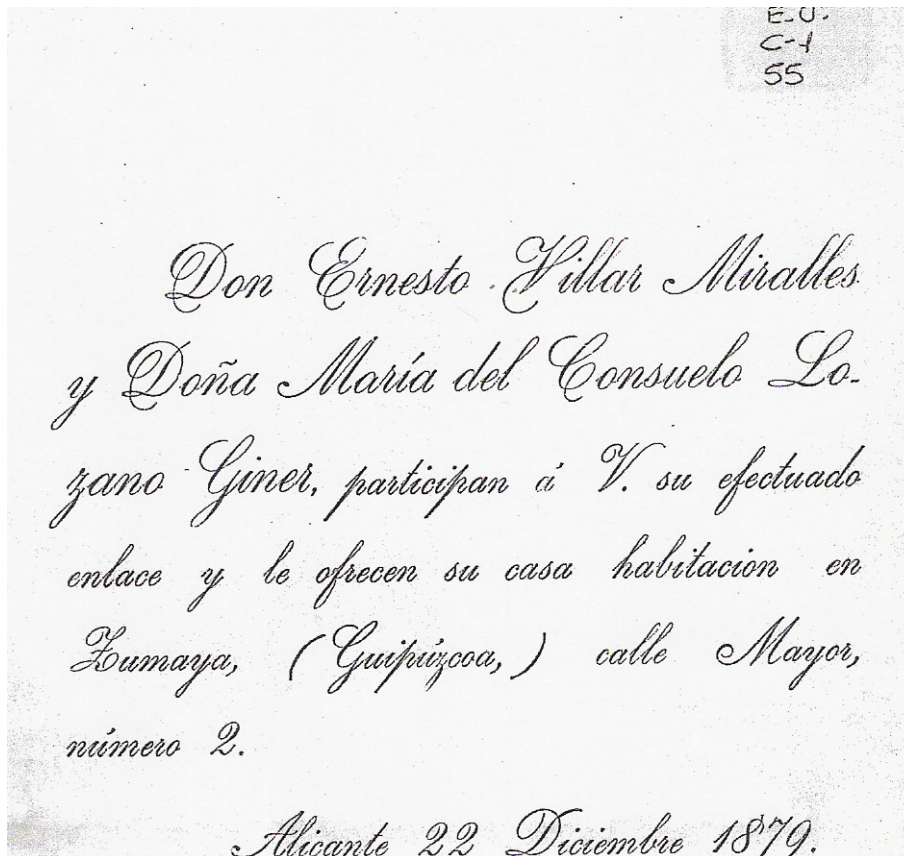 E.U.
C-1
55
Don Ernesto Villar Miralles
y Doña María del Consuelo Lo-
zano Giner, participan á V. su efectuado
enlace y le ofrecen su casa habitacion en
Zumaya, (Guipúzcoa,) calle Mayor,
número 2.
Alicante 22 Diciembre 1879.